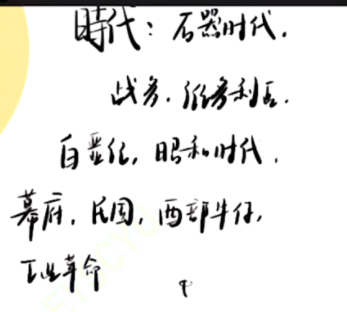 時代：石器时代，
战务，维多利亚，
白垩纪，昭和时代，
幕府，民国，西部牛仔，
工业革命